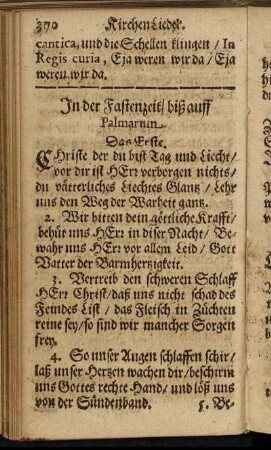 370 KirchenLieder.
cantica, und die Schellen klingen / In
Regis curia, Eja weren wir da / Eja
weren wir da.
In der Fastenzeit / biß auff
Palmarum.
Das Erste.
CHriste der du bist Tag und Liecht /
vor dir ist HErr verborgen nichts /
du vätterliches Liechtes Glantz / Lehr
uns den Weg der Warheit gantz.
2. Wir bitten dein göttliche Krafft /
behüt uns HErr in diser Nacht / Be-
wahr uns HErr vor allem Leid / Gott
Vatter der Barmhertzigkeit.
3. Vertreib den schweren Schlaff
HErr Christ / daß uns nicht schad des
Feindes List / das Fleisch in Züchten
reine sey / so sind wir mancher Sorgen
frey.
4. So unser Augen schlaffen schir /
laß unser Hertzen wachen dir / beschirm
uns Gottes rechte Hand / und löß uns
von der Sündenband. 5. Be-